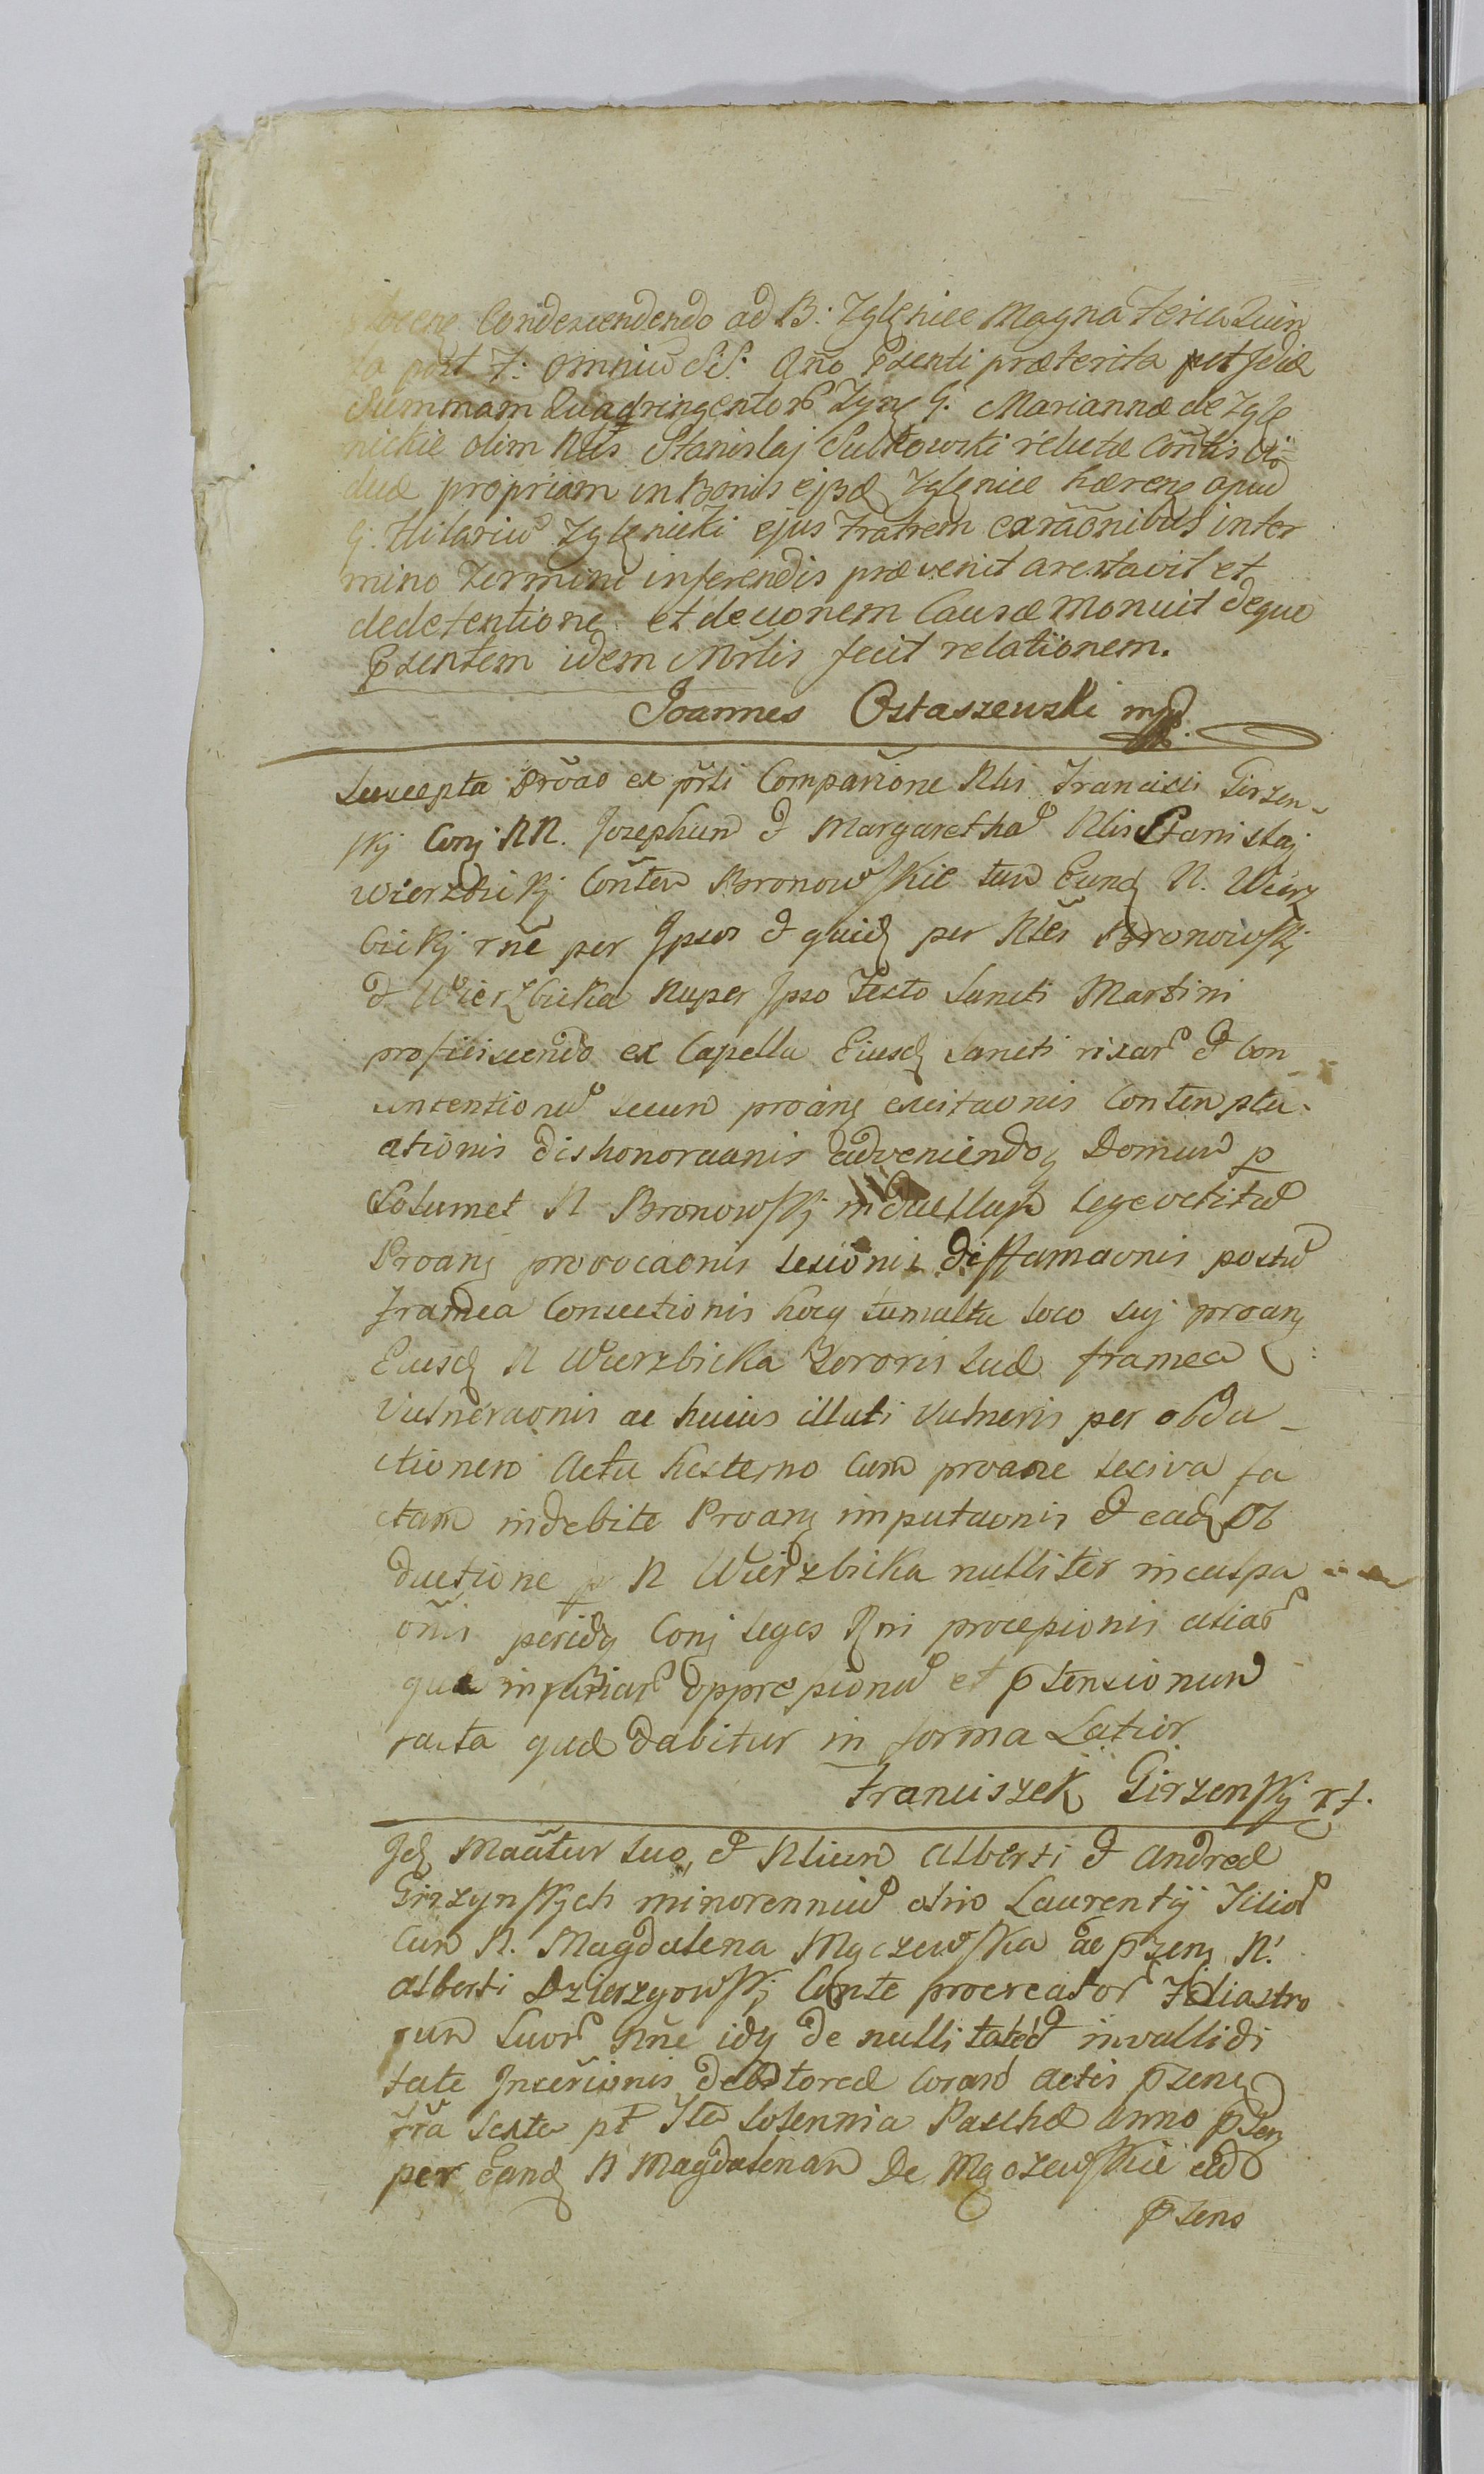 Condescendendo ad B: Zglenice Magna Feria Quin
ta post F: omniũ SS: Año Pxenti præterita
Summam Quadringentorũ Zyne G. Mariannæ de Zgle
nickie olim Nlis Stanislaj Sulkowski relictæ Coñtis
duæ propriam in Bonis ejsdę Zglenice hæreng apud
G. Hilariũ Zglenicki ejus Fratrem ex rãonibus inter
mino Termini inferendis prævenit arestavit et
dedetentione et devonem Causæ monuit deque
Pxentem idem Mñrlis fecit relationem.
Joannes Ostaszewski mp
Suscepta Prõao ex pr̃li Compariõne Nlis Francisci Girzen-
skj Conj NN. Josephum & Margarethã Nlis Stanislaj
Wierzbickj Coñtem Bronowskie tum Eundę N. Wierz
bickj rñe per Ipsos & quidę per Nles Bronowskj
& Wierzbicka nuper Ipso Festo Sancti Martini
proficiscendo ex Capella Eiusdę Sancti rixarũ & Con
tentionũ secum proang excitaonis Contemptu
ationis dishonoraonis adveniendoq Domum p
Solumet N Bronowskj in duellum lege vetitũ
Proang provocaonis lesionis diffamaonis postũ
framea Consectionis hocq tumultu loco suj proang
Eiusdę N Wierzbicka Sororis suæ framea
Vulneraonis ac huius illati Vulneris per obdu-
ctionem Actu hesterno Cum proaone lesiva fa
ctam indebite Proang imputaonis & eadę Ob
ductione p N Wierzbicka nulliter inculpa
onis peridq Conj leges Rni processionis aliarũ
que injuriarũ oppressionũ et ptensionum
facta quæ dabitur in forma Latior
Franciszek Girzenskj
Jdę Mãtur suo, & Nlium Alberti & Andreæ
Girzynskych minorenniũ olim Laurentij Filiorũ
Cum N. Magdalena Mączewska ac pzeng N.
Alberti Dzierzgowskj Conte procreatorũ Filiastro
rum suorũ Nñe idq de nullitate & invallidi
tate Inscriõnis debitoreæ coram actis Pzeng
Fr̃a Sexta pt Fta Solennia Paschæ Anno pzen
per Eandę N Magdalenam De Mączewskie
pzens